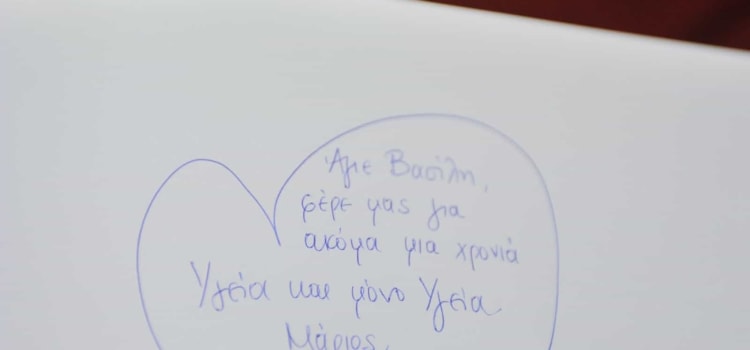 Άγιε Βασίλη,
φέρε μας για
ακόμα μια χρονιά
Υγεία και μόνο Υγεία
Μάριος.